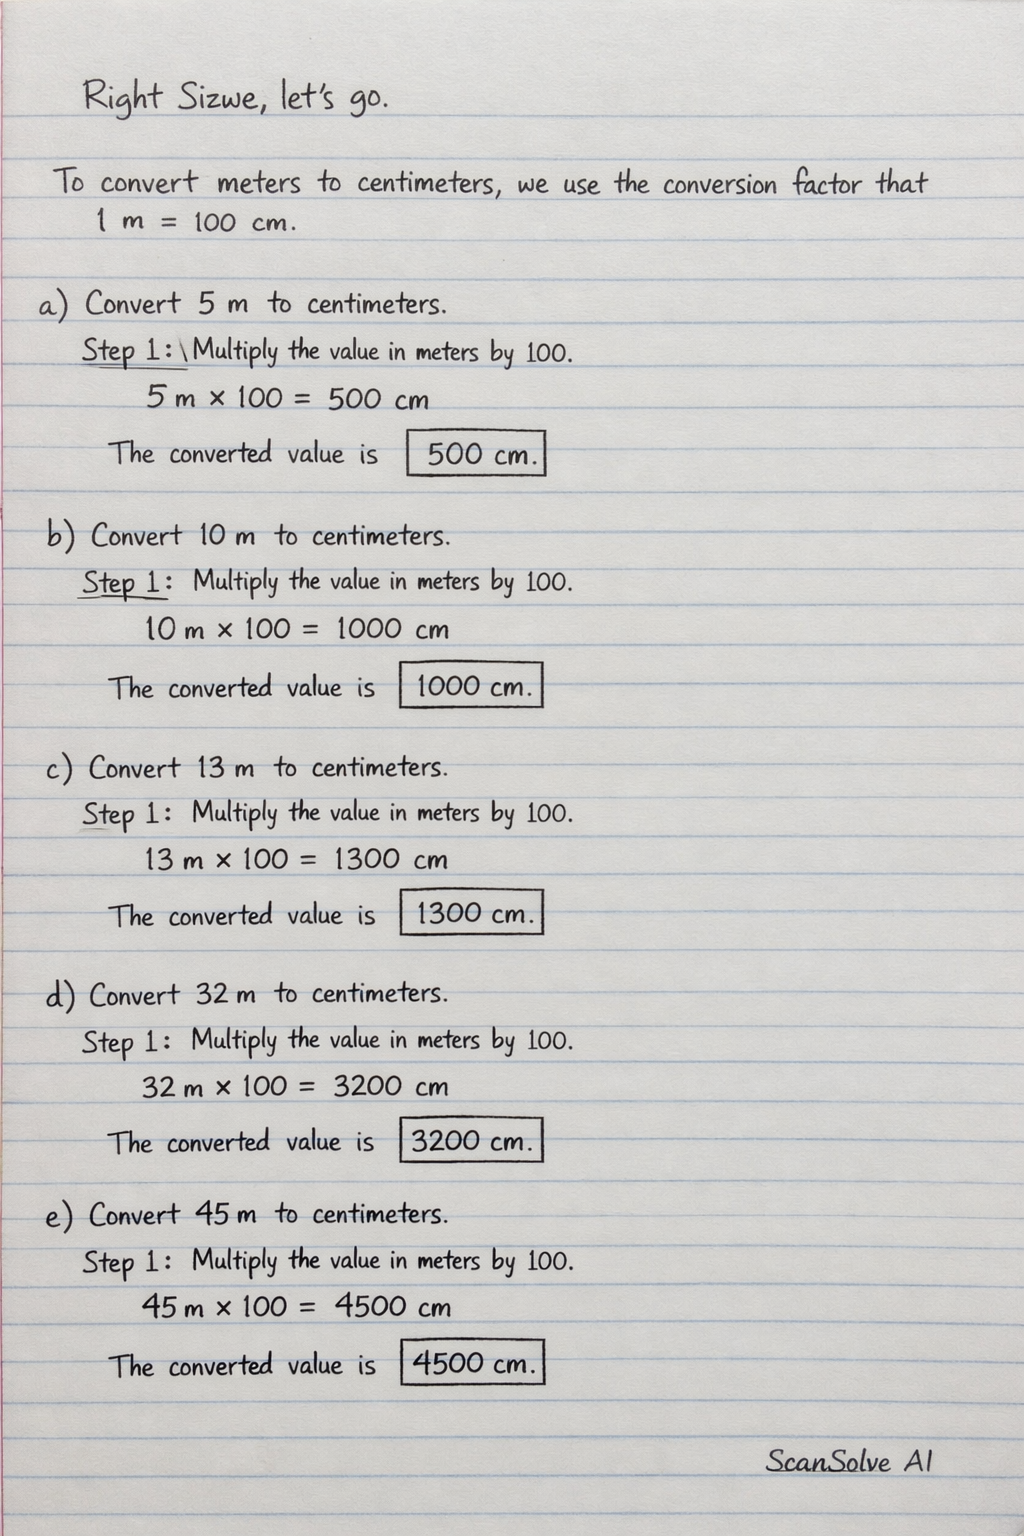 Right Sizwe, let's go.
To convert meters to centimeters, we use the conversion factor that
1 m = 100 cm.
a) Convert 5 m to centimeters.
Step 1:\ Multiply the value in meters by 100.
5 m × 100 = 500 cm
The converted value is 500 cm.
b) Convert 10 m to centimeters.
Step 1: Multiply the value in meters by 100.
10 m × 100 = 1000 cm
The converted value is 1000 cm.
c) Convert 13 m to centimeters.
Step 1: Multiply the value in meters by 100.
13 m × 100 = 1300 cm
The converted value is 1300 cm.
d) Convert 32 m to centimeters.
Step 1: Multiply the value in meters by 100.
32 m × 100 = 3200 cm
The converted value is 3200 cm.
e) Convert 45 m to centimeters.
Step 1: Multiply the value in meters by 100.
45 m × 100 = 4500 cm
The converted value is 4500 cm.
ScanSolve AI